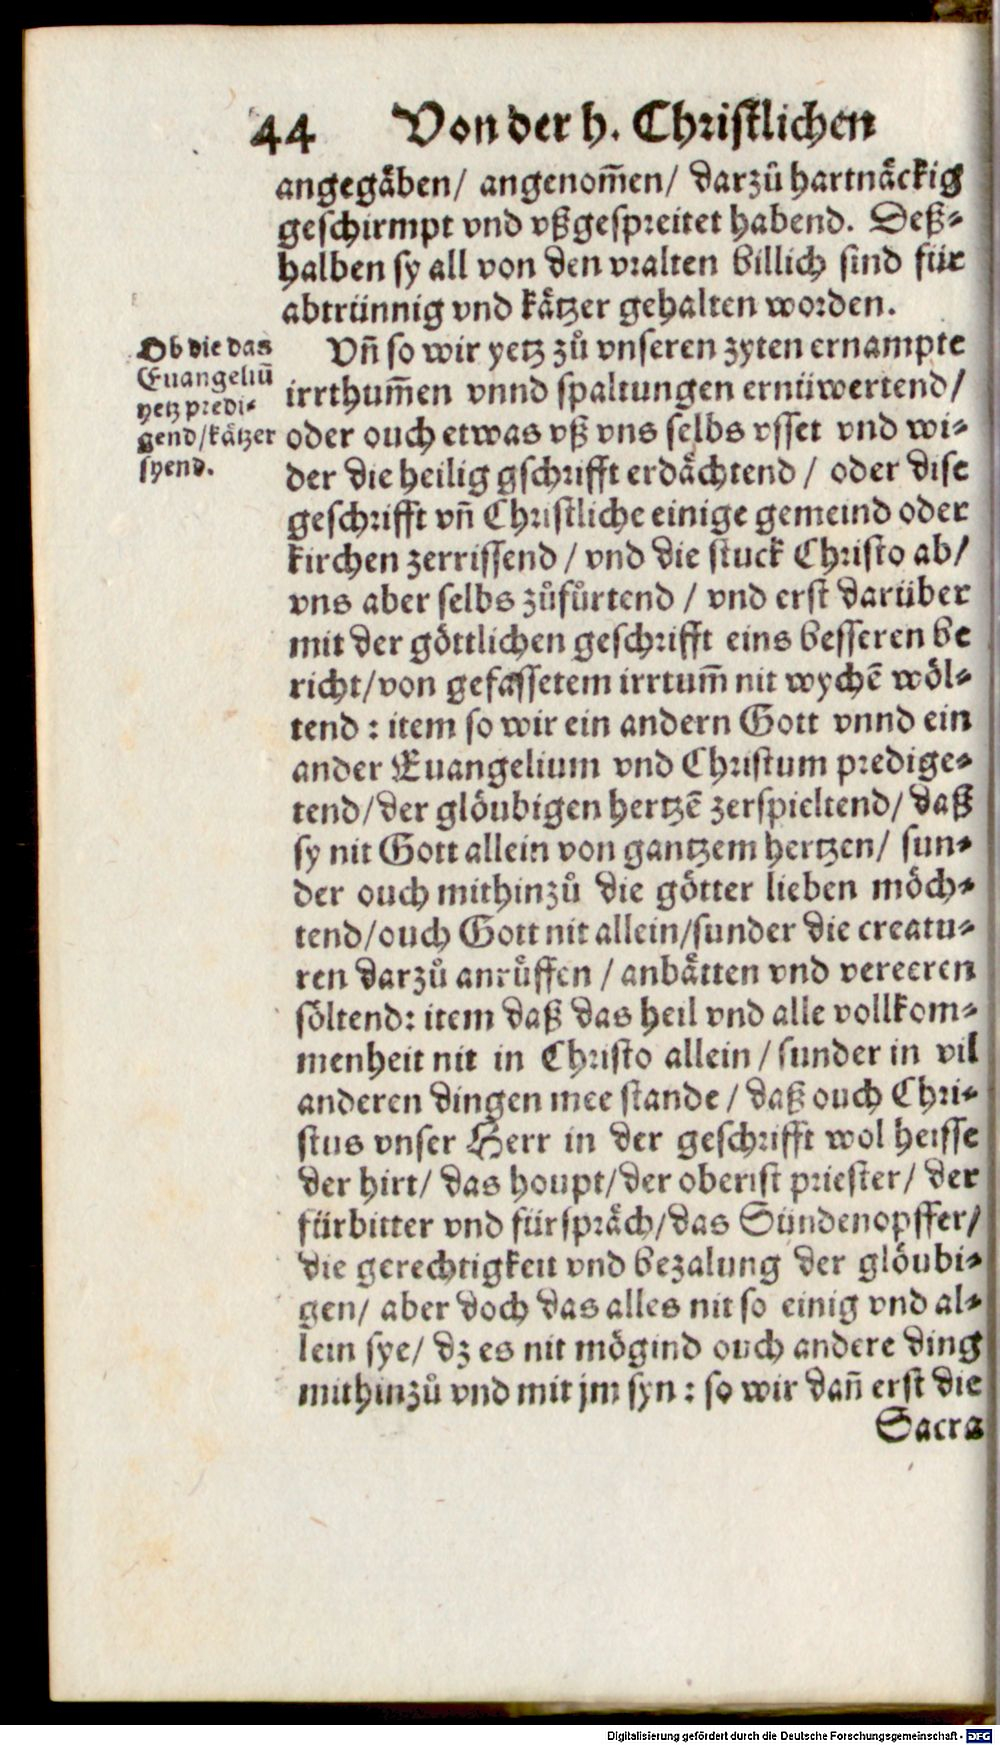 44 Von der h. Christlichen
angegåben/ angenom̃en/ darzů hartnåckig
geschirmpt vnd vßgespreitet habend. Deß-
halben sy all von den vralten billich sind für
abtrünnig vnd kåtzer gehalten worden.
Ob die das
Euangeliū
yetz predi-
gend/kåtzer
syend.
Vñ so wir yetz zů vnseren zyten ernampte
irrthum̃en vnnd spaltungen ernüwertend/
oder ouch etwas vß vns selbs vsset vnd wi-
der die heilig gschrifft erdåchtend / oder dise
geschrifft vñ Christliche einige gemeind oder
kirchen zerrissend / vnd die stuck Christo ab/
vns aber selbs zůfůrtend / vnd erst darüber
mit der göttlichen geschrifft eins besseren be
richt/von gefassetem irrtum̃ nit wychē wöl-
tend : item so wir ein andern Gott vnnd ein
ander Euangelium vnd Christum predige-
tend/der glöubigen hertzē zerspieltend/ daß
sy nit Gott allein von gantzem hertzen/ sun-
der ouch mithinzů die götter lieben möch-
tend/ouch Gott nit allein/sunder die creatu-
ren darzů anrůffen / anbåtten vnd vereeren
söltend: item daß das heil vnd alle vollkom-
menheit nit in Christo allein / sunder in vil
anderen dingen mee stande / daß ouch Chri-
stus vnser Herr in der geschrifft wol heisse
der hirt/ das houpt/der oberist priester/ der
fürbitter vnd fürspräch/das Sündenopffer/
die gerechtigkeit vnd bezalung der glöubi-
gen/ aber doch das alles nit so einig vnd al-
lein sye/ dz es nit mögind ouch andere ding
mithinzů vnd mit jm syn : so wir dañ erst die
Sacra
Digitalisierung gefördert durch die Deutsche Forschungsgemeinschaft - DFG